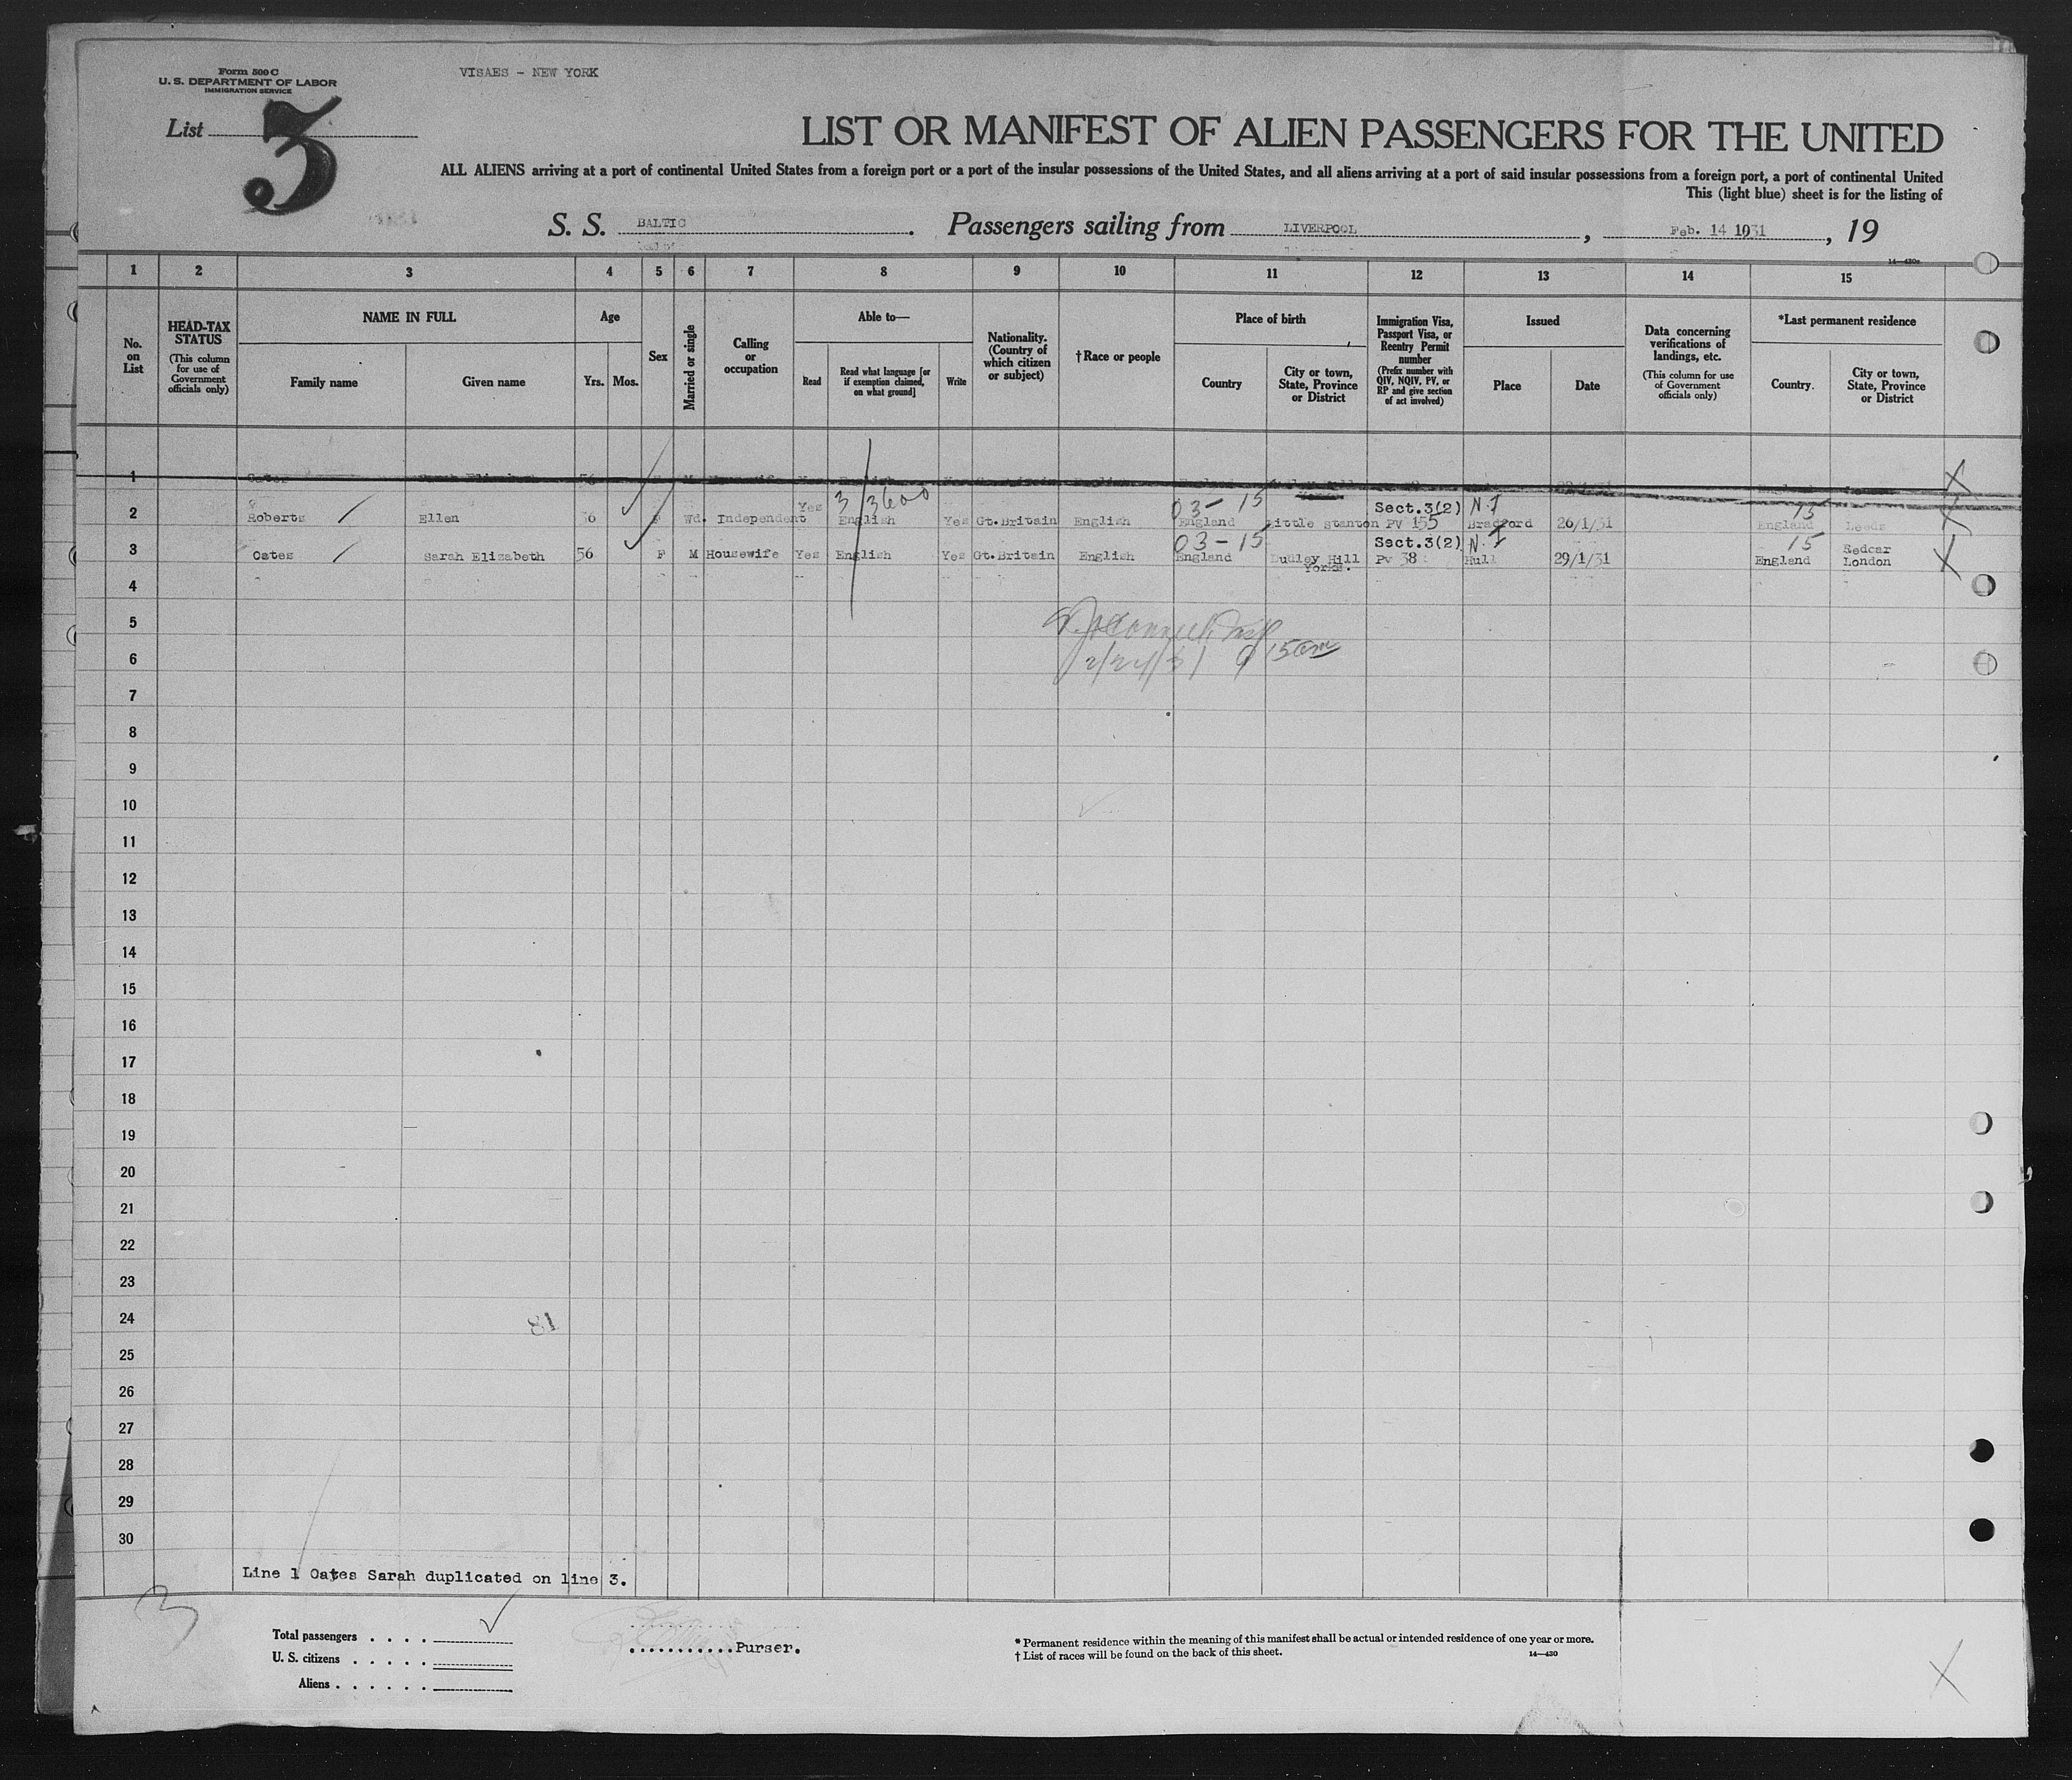 Form 500 C
U. S. DEPARTMENT OF LABOR
IMMIGRATION SERVICE
VISAES - NEW YORK
List 3
LIST OR MANIFEST OF ALIEN PASSENGERS FOR THE UNITED
ALL ALIENS arriving at a port of continental United States from a foreign port or a port of the insular possessions of the United States, and all aliens arriving at a port of said insular possessions from a foreign port, a port of continental United
This (light blue) sheet is for the listing of
S. S. BALTIC. Passengers sailing from LIVERPOOL, Feb. 14 1931, 19
14—430c
1 2 3 4 5 6 7 8 9 10 11 12 13 14 15
No. on List
HEAD-TAX STATUS
(This column for use of Government officials only)
NAME IN FULL
Family name
Given name
Age
Yrs. Mos.
Sex
Married or single
Calling or occupation
Able to—
Read
Read what language [or if exemption claimed, on what ground]
Write
Nationality. (Country of which citizen or subject)
†Race or people
Place of birth
Country
City or town, State, Province or District
Immigration Visa, Passport Visa, or Reentry Permit number
(Prefix number with QIV, NQIV, PV, or RP and give section of act involved)
Issued
Place
Date
Data concerning verifications of landings, etc.
(This column for use of Government officials only)
*Last permanent residence
Country.
City or town, State, Province or District
1 Oates Sarah Elizabeth 56 M Housewife Yes English Yes Gt.Britain English England
3 3600 03-15 Sect.3(2) N.I 15
2 Roberts Ellen 56 F Wd. Independent Yes English Yes Gt.Britain English England Little Stanton PV 155 Bradford 26/1/31 England Leeds X
03-15 Sect.3(2) N.I 15 Redcar
3 Oates Sarah Elizabeth 56 F M Housewife Yes English Yes Gt.Britain English England Dudley Hill Yorks. Pv 38 Hull 29/1/31 England London X
4
5
6
2/24/31 9 15am
7
8
9
10
11
12
13
14
15
16
17
18
19
20
21
22
23
24
81
25
26
27
28
29
30
Line 1 Oates Sarah duplicated on line 3.
3
Total passengers . . . .
U. S. citizens . . . . .
Aliens . . . . . .
...........Purser.
* Permanent residence within the meaning of this manifest shall be actual or intended residence of one year or more.
† List of races will be found on the back of this sheet.
14—430
X